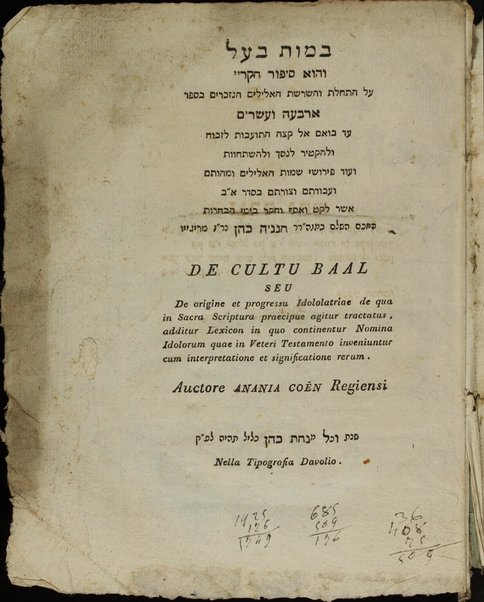 במות בעל
והוא סיפור הקריי
על התחלת והשרשת האלילים הנזכרים בספר
ארבעה ועשרים
עד בואם אל קצה התועבות לזבוח
ולהקטיר לנסך ולהשתחוות
ועוד פירושי שמות האלילים ומהותם
ועבודתם וצורתם בסדר א״ב
אשר לקט ואסף וחקר בימי הבחרות
חנניה כהן
DE CULTU BAAL
SEU
De origine et progressu Idololatriae de qua
in Sacra Scriptura praecipue agitur tractatus,
additur Lexicon in quo continentur Nomina
Idolorum quae in Veteri Testamento inveniuntur
cum interpretatione et significatione rerum.
Auctore ANANIA COËN Regiensi
שנת וכל מנחת כהן כליל תהיה לפ״ק
Nella Tipografia Davolio.
1925 685 26
126 509 408
1769 176 75
509